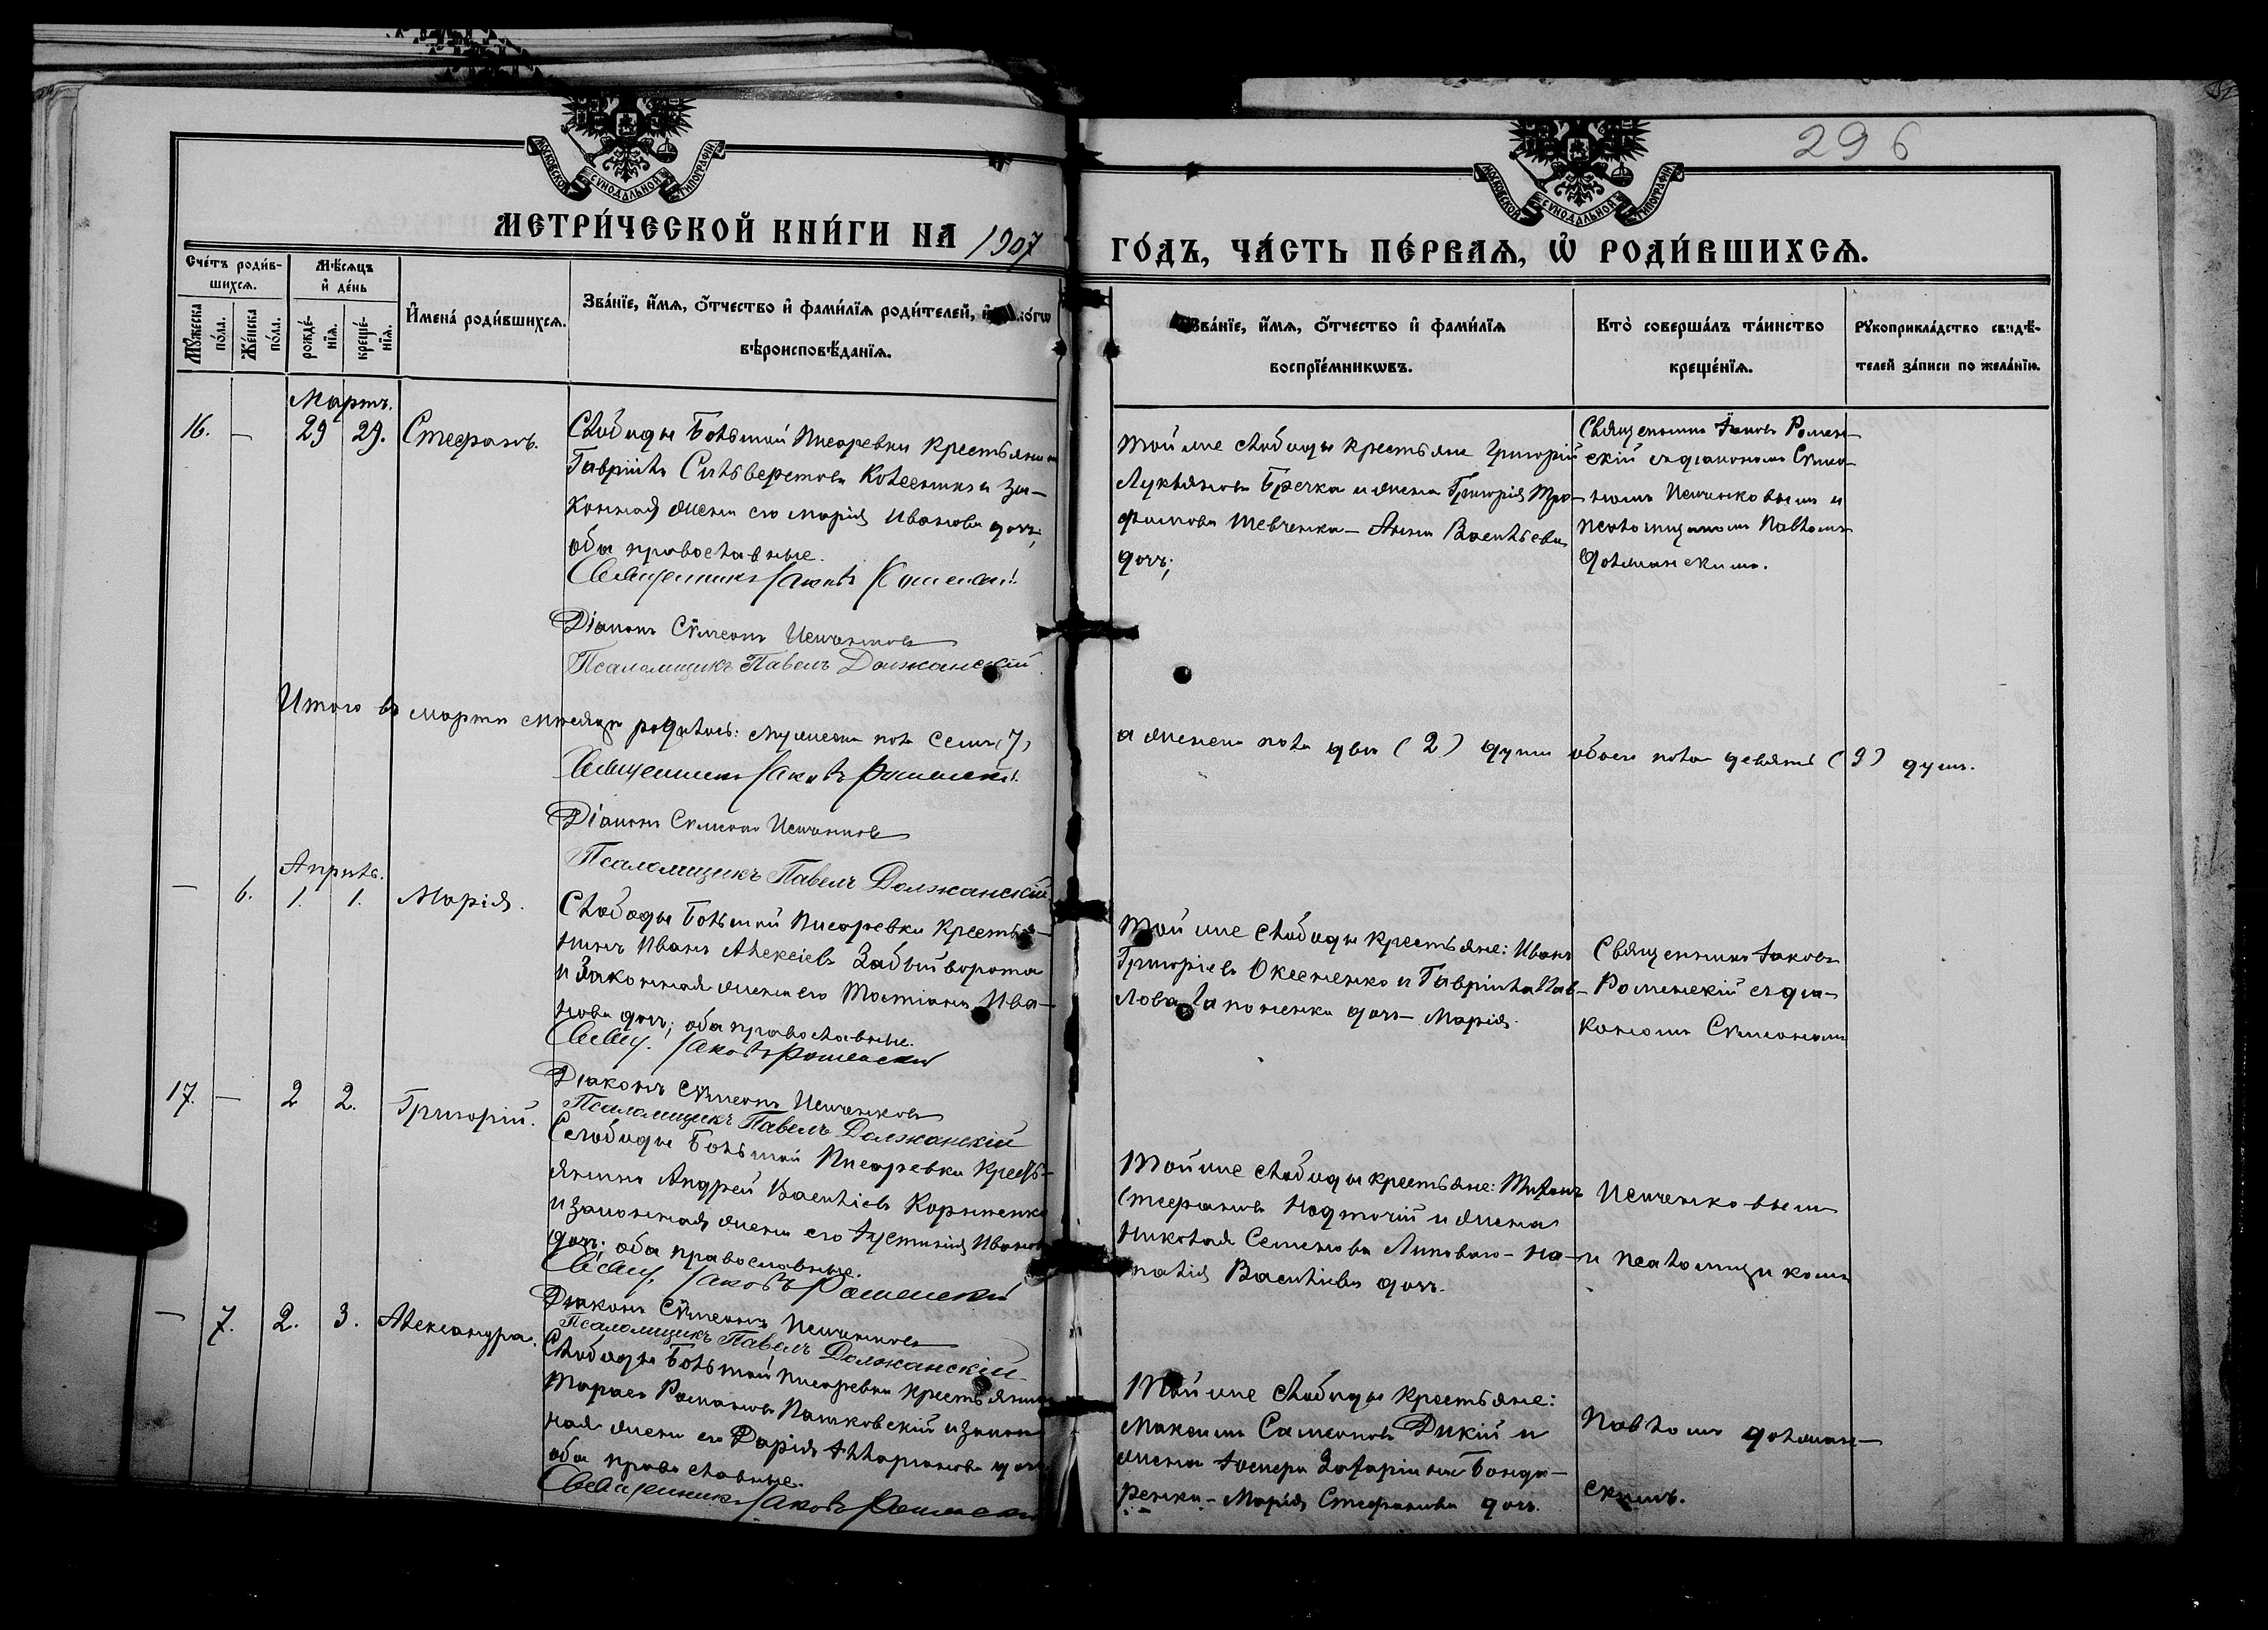 296
МОСКОВСКОЙ СѴНОДАЛЬНОЙ ТИПОГРАФІИ
МОСКОВСКОЙ СѴНОДАЛЬНОЙ ТИПОГРАФІИ
МЕТРИ́ЧЕСКОЙ КНИ́ГИ НА 1907
ГО́ДЪ, ЧА́СТЬ ПЕ́РВАѦ, Ѡ҆ РОДИ́ВШИХСѦ.
Сче́тъ роди́в-
шихсѧ.
Мꙋжеска по́ла.
Же́нска по́ла.
Мѣ́сѧцъ и҆ де́нь
рожде́-
нїѧ.
креще́-
нїѧ.
И҆мена̀ роди́вшихсѧ.
Зва́нїе, и҆́мѧ, ѻ҆́тчество и҆ фами́лїѧ роди́телей, и҆
вѣроисповѣ́данїѧ.
Зва́нїе, и҆́мѧ, ѻ҆́тчество и҆ фами́лїѧ
воспрїе́мникѡвъ.
Кто̀ соверша́лъ та́инство
креще́нїѧ.
Рꙋкоприкла́дство свидѣ́-
телей за́писи по жела́нїю.
Мартъ.
16. — 29 29. Стефанъ.
Слободы Большой Писаревки крестьянинъ
Гавріилъ Сильверстовъ Колесникъ и за-
конная жена его Марія Иванова дочь,
оба православные.
Священникъ Іаковъ Роменскій
Діаконъ Сѵмеонъ Иемченковъ
Псаломщикъ Павелъ Должанскій
Той же слободы крестьяне Григорій
Лукьяновъ Бречка и жена Григорія Тро-
фимова Шевченка — Анна Васильева
дочь;
Священникъ Іаковъ Ромен-
скій съ діакономъ Сѵмео-
номъ Иемченковымъ и
псаломщикомъ Павломъ
Должанскимъ.
Итого въ мартѣ мѣсяцѣ родилось: мужеска пола семь (7)
а женска пола двѣ (2) души обоего пола девять (9) душъ.
Священникъ Іаковъ Роменскій
Діаконъ Сѵмеонъ Иемченковъ
Псаломщикъ Павелъ Должанскій
Апрѣль.
— 6. 1. 1. Марія.
Слободы Большой Писаревки кресть-
нинъ Иванъ Алексіевъ Забыйворота
и законная жена его Татіана Ива-
нова дочь; оба православные.
Свящ. Іаковъ Роменскій
Діаконъ Сѵмеонъ Иемченковъ
Псаломщикъ Павелъ Должанскій
Той же слободы крестьяне: Иванъ
Григоріевъ Оксененко и Гавріила Пав-
лова дочь — Марія.
Священникъ Іаковъ
Роменскій съ діа-
кономъ Сѵмеономъ
17. — 2 2. Григорій.
Слободы Большой Писаревки кресть-
янинъ Андрей Васильевъ Корниенко
и законная жена его Іустинія Иванова
дочь; оба православные.
Свящ. Іаковъ Роменскій
Діаконъ Сѵмеонъ Иемченковъ
Псаломщикъ Павелъ Должанскій
Той же слободы крестьяне: Тихонъ
Стефановъ Надточій и жена
Николая Семенова Липоваго — На-
талія Васильева дочь.
Иемченковымъ
и псаломщикомъ
— 7. 2. 3. Александра.
Слободы Большой Писаревки крестьянинъ
Тарасъ Романовъ Пашковскій и закон
ная жена его Дарія Илларионова дочь
оба православные.
Священникъ Іаковъ Роменскій
Той же слободы крестьяне:
Максимъ Самсоновъ Дикій и
жена Іосифа Захаріина Бонда-
ренка — Марія Стефанова дочь.
Павломъ Должан-
скимъ.